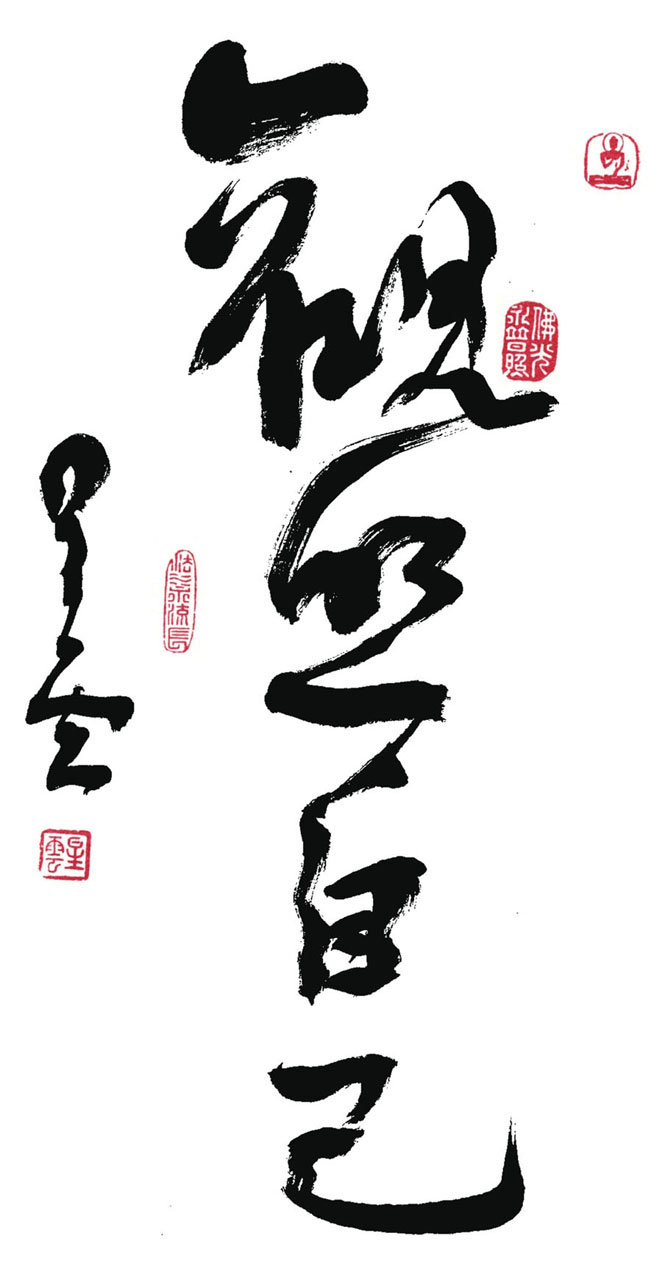 觀照自己
佛光
永普照
法水流長
星雲
星雲